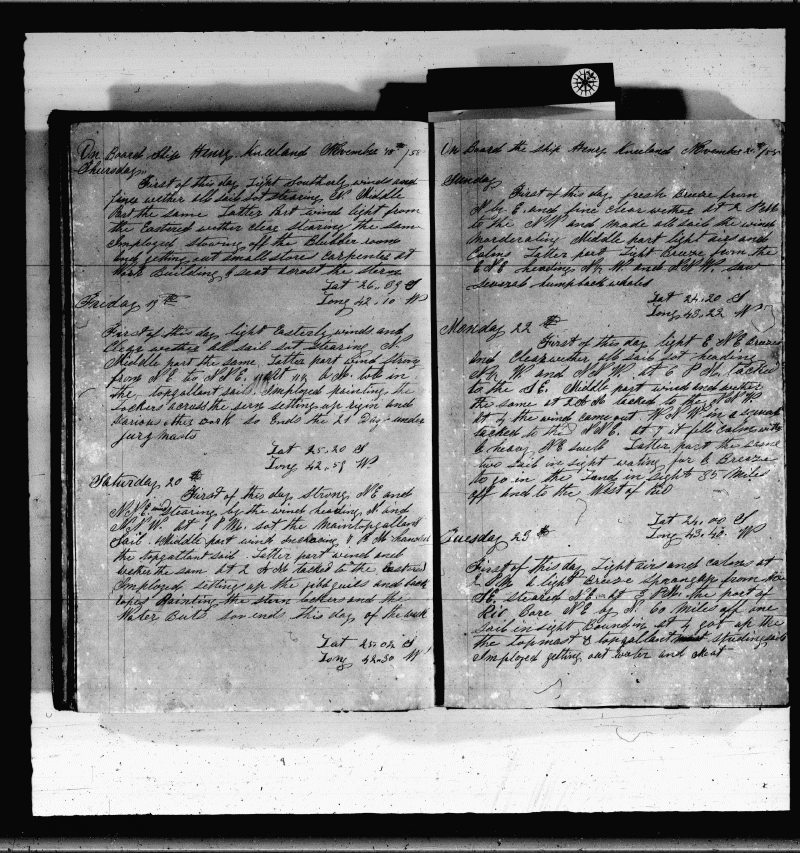 On Board Ship Henry Kneeland November 18th /58
Thursday
First of this day Light Southerly winds and
wether all sail sot stearing N. Middle
Part the same Latter Part wind light from
the Eastered wether clear stearing the same
Imployed stowing off the Blubber room
and getting out small stores Carpenter at
Work Building a seat acrost the stern
Lat 26.09 S
Long 42.10 W
Friday 19th
First of this day light Easterly winds and
Clear wether all sail sot stearing N.
Middle part the same Latter part wind strong
from N E to N N E. At A M. tok in
the topgallant sails. Imployed painting the
lockers across the stern setting up rigin and
various other work so Ends the 21 Day under
jury masts
Lat 25.20 S
Long 42.59 W
Saturday 20th
First of this day strong N E and
N N E wind stearing by the wind heading N and
N N W at P M. sot the Maintopgallant
Sail. Middle part wind increasing P M handed
the topgallant sail. Latter part wind and
wether the sam at 2 A M tacked to the Eastered
Imployed setting up the jibb guils and back
ropes Painting the stern lockers and the
Water Cuts so end this day of the week
Lat 25.02 S
Long 42.30 W
On Board the ship Henry Kneeland November 21st /58
Sunday
First of this day fresh Breeze from
N by E. and fine clear wether at 2 P M
to the N W and made all sail the wind
moderating Middle part light airs and
Calms. Latter part Light Breeze from the
E N E heading N by W and N N W. saw
several humpback whales
Lat 24.20 S
Long 43.22 W
Monday 22th
First of this day light E N E Breezes
and Clear wether all sail sot heading
N by W and N N W. at 6 P M. Tacked
to the S E. Middle part wind and wether
the same at 2 A M tacked to the N N W
at 4 the wind came out W N W in a squall
tacked to the N N E. at 7 it fell calm with
a heavy N E swell Latter part the same
two sail in sight wating for a Breeze
to go in the land in sight 35 Mile
off and to the West of
Lat 24.00 S
Long 43.40 W
Tuesday 23th
First of this day Light airs and calms at
P M a light Breeze sprang up from the
S E steared N E. at P M. the port of
Rio Bore N E by N 60 Miles off one
Sail in sight Bounding in at 4 got up the
the topmast & topgallant studingsails
Imployed getting out water and meat